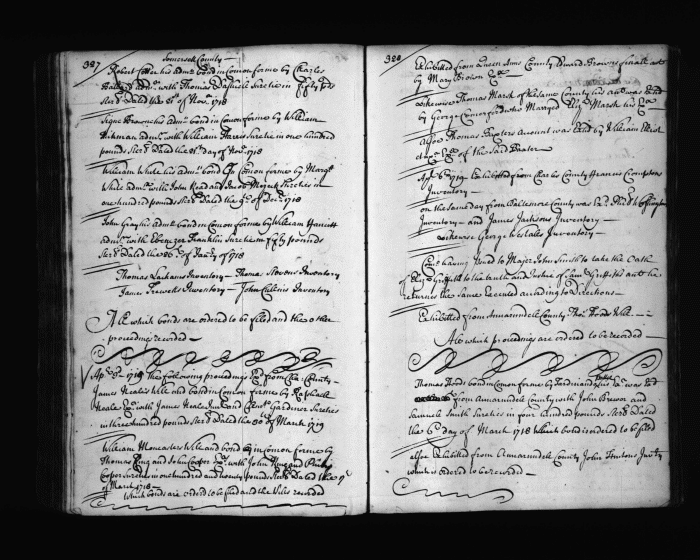 327 Somersett County
Robert Cotter his adm.rs bond in Comon forme by Charles
Ballard adm.r with Thomas Dashiell Suretie in fifty p.ds
Ster.l Dated the 8th of Nov.r 1718
his adm.rs bond in Comon forme by William
adm.r with William Suretie in one hundred
pounds Ster.l Dated the day of Nov.r 1718
William While his adm.rs bond In Comon forme by Marg.t
While adm.x with John Read and Jacob Sureties in
one hundred pounds Ster.l Dated the 9th of Dec.r 1718
John Gray his adm.rs bond in Comon forme by William Harriett
adm.r with Ebenezer Franklin Suretie in fifty pounds
Ster.l Dated the 26th of Jan.ry 1718
Thomas Inventory — Thomas Stevens Inventory
James Trewetts Inventory — John Cullens Inventory
All which bonds are ordered to be filed and the other
proceedings recorded —
Ap. 1719 The following proceedings from Cha: County —
James Neale's Will and bond in Comon forme by Raphaell
Neale Ex.r with James Neale Jun.r and Gardiner Sureties
in three hundred pounds Ster.l Dated the 30th of March 1719
William Moncasters Will and bond in Comon forme by
Thomas King and John Cooper Ex.rs with John King and
Cooper Sureties in one hundred and pounds Ster.l Dated the
of March 1718 —
Which bonds are ordered to be filed and the Wills recorded
328
Exhibited from Queen Anns County Edward Browns
by Mary Brown Ex.x
Likewise Thomas Marsh of the same County his acc.t was
by George Comerford who Married Eliz. Marsh his Ex.x
Also Thomas Baxters Account was by William Elliot
Ex.r of the Said Baxter
Ap. 6th 1719 Exhibited from Charles County Francis Cromptons
Inventory —
on the same day from Baltemore County was
Inventory — and James Jacksons Inventory —
Likewise George Westalls Inventory —
Com.n having Issued to Major John Smith to take the Oath
of Eliz. Griffith to the truth and Justice of Sam. Griffiths acc.t he
returnes the same Executed according to Directions —
Exhibited from Annarundell County Tho. Woods Will —
All which proceedings are ordered to be recorded —
Thomas Woods bond in Comon forme by
from Annarundell County with John Brewer and
Samuell Smith Sureties in four hundred pounds Ster.l Dated
the 6th day of March 1718 Which bond is ordered to be filed
Also Exhibited from Annarundell County John Inv.ty
which is ordered to be recorded —